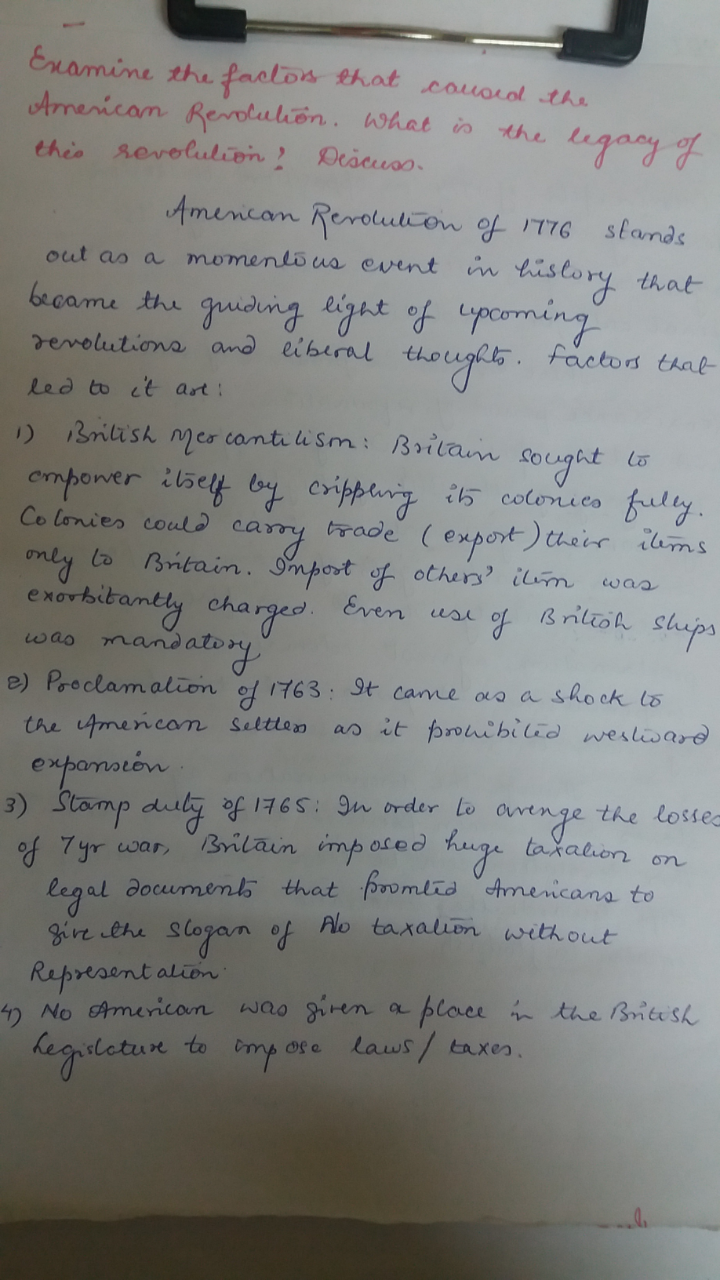 Examine the factors that caused the
American Revolution. What is the legacy of
this revolution? Discuss.
American Revolution of 1776 stands
out as a momentous event in history that
became the guiding light of upcoming
revolutions and liberal thoughts. Factors that
led to it are:
1) British Mercantilism: Britain sought to
empower itself by crippling its colonies fully.
Colonies could carry trade (export) their items
only to Britain. Import of others' item was
exorbitantly charged. Even use of British ships
was mandatory.
2) Proclamation of 1763: It came as a shock to
the American settlers as it prohibited westward
expansion.
3) Stamp duty of 1765: In order to avenge the losses
of 7yr war, Britain imposed huge taxation on
legal documents that promted Americans to
give the slogan of No taxation without
Representation.
4) No American was given a place in the British
Legislature to impose laws/ taxes.